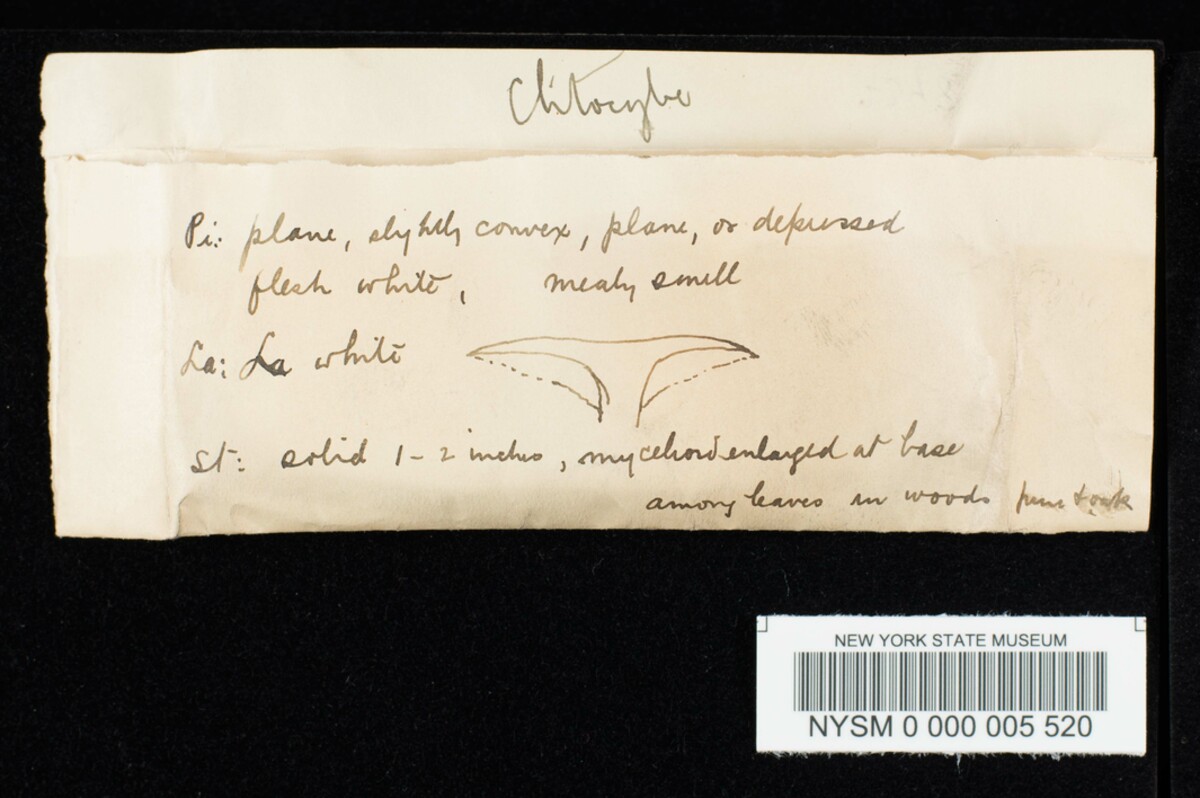 Clitocybe
Pi: plane, slightly convex, plane, or depressed
flesh white, mealy smell
La: La white
St: solid 1-2 inches, myceliod enlarged at base
among leaves in woods pine & oak
NEW YORK STATE MUSEUM
NYSM 0 000 005 520